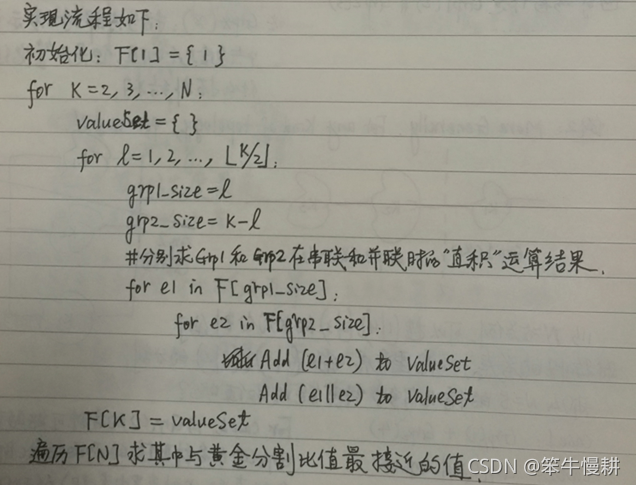 实现流程如下:
初始化: F[1] = { 1 }
for K=2, 3, ..., N:
valueSet = { }
for l=1, 2, ..., ⌊K/2⌋:
grp1_size = l
grp2_size = K-l
#分别求Grp1和Grp2在串联和并联时的"直积"运算结果.
for e1 in F[grp1_size]:
for e2 in F[grp2_size]:
Add (e1+e2) to valueSet
Add (e1||e2) to valueSet
F[K] = valueSet
遍历F[N]求其中与黄金分割比值最接近的值.
CSDN @笨牛慢耕